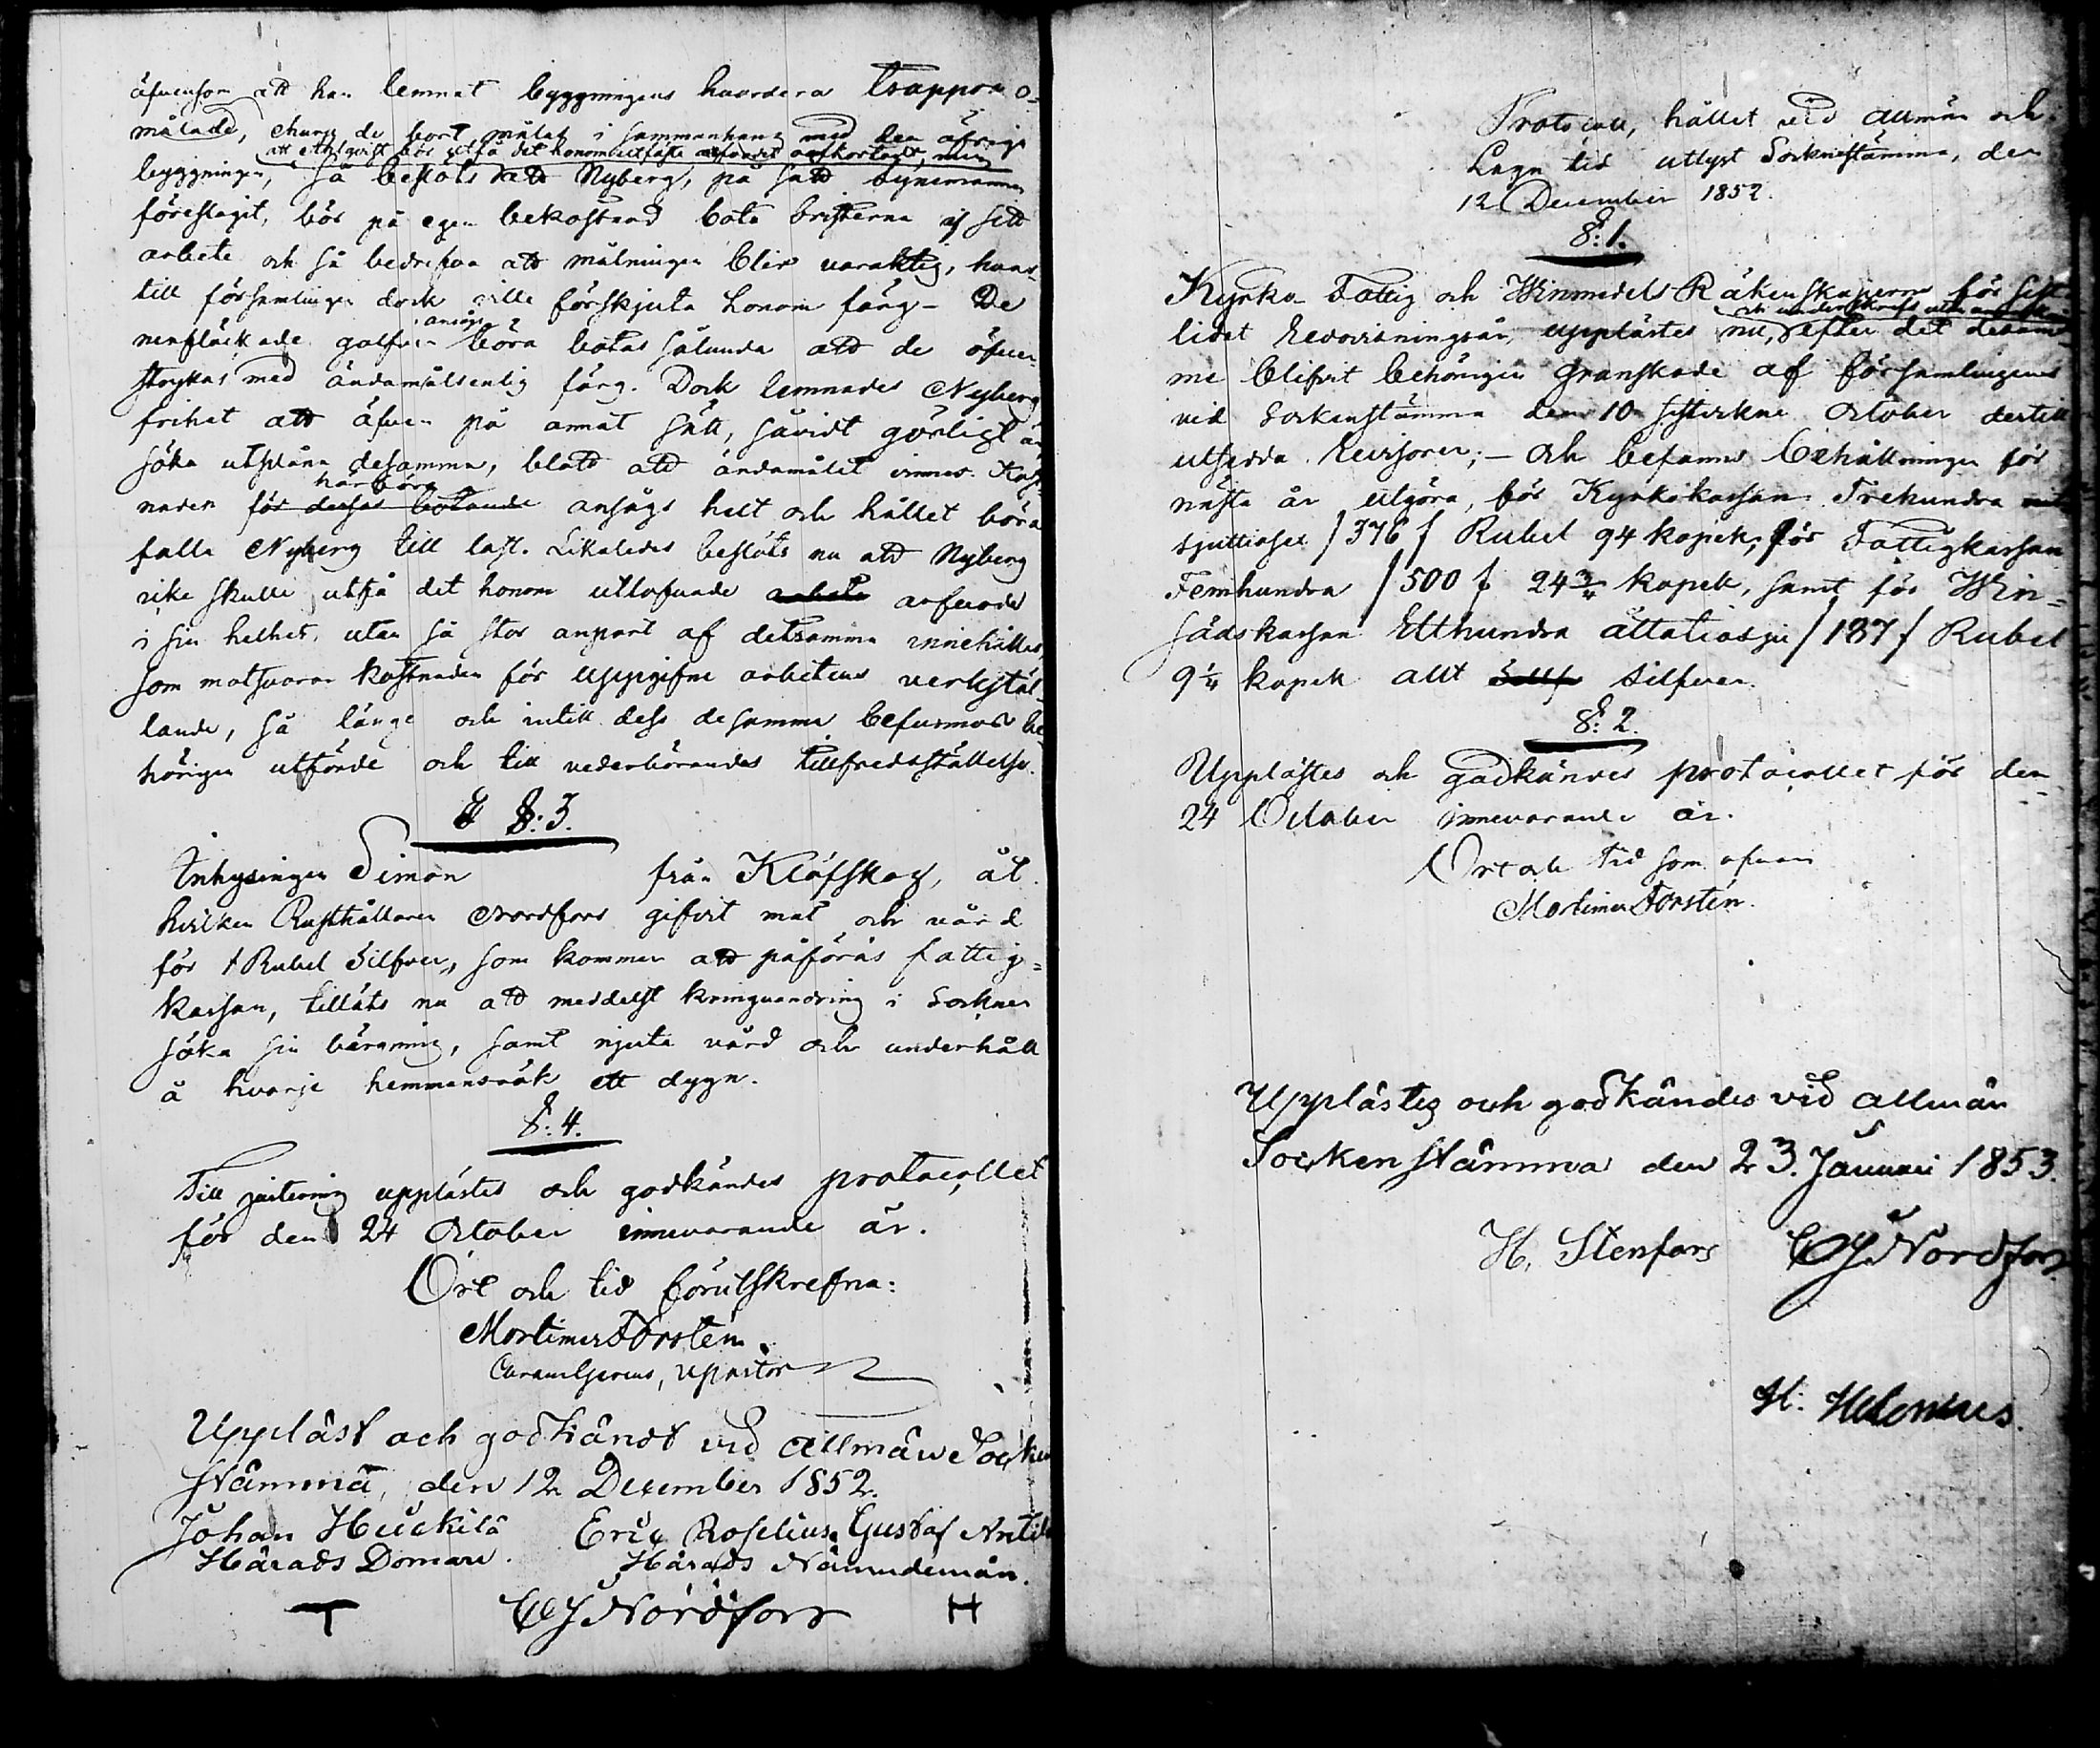 äfvensom att han lemnat byggningens hvardera trappor o-
målade, ehuru de bort målas i sammanhang med den öfriga
byggningen, så beslöts att Nyberg, på sätt synemannen
föreslagit, bör på egen bekostnad bota bristerna i sitt
arbete och så bedrifva att målningen blir varaktig, hvar-
till församlingen dock ville förskjuta honom färg – De
nerfläckade golfven ansågs böra botas sålunda att de öfver-
strykas med ändamålsenlig färg. Dock lemnades Nyberg
frihet att äfven på annat sätt, såvidt görligt är,
söka utplåna desamma, blott att ändamålet vinnes. Kost-
naden härför ansågs helt och hållet böra
falla Nyberg till last. Likaledes beslöts nu att Nyberg
icke skulle utfå det honom utlofvade arfvode
i sin helhet, utan så stor anpart af detsamma innehålles,
som motsvarar kostnaden för uppgifne arbetens verkstäl-
lande, så länge och intill dess desamma befunnos be-
hörigen utförde och till vederbörandes tillfredsställelse.
§: 3.
Inhysingen Simon från Klåfskog, åt
hvilken Rusthållaren Nordfors gifvit mat och vård
för 1 Rubel Silfver, som kommer att påföras fattig-
kassan, tilläts nu att medelst kringvandring i Socknen
söka sin bärgning, samt njuta vård och underhåll
å hvarje hemmansrök ett dygn.
§: 4.
Till justering upplästes och godkändes protocollet
för den 24 October innevarande år.
Ort och tid förutskrefna:
Mortimer Forstén
Upplást och godkándt vid allmáne Socken
Stámma, den 12 December 1852.
Johan Huckilá Eric Roselius Gustaf Antila
Hárads Domare. Hárads Námndemán.
T CJ Nordfors H
Protocoll, hållet vid allmän och
Laga tid utlyst Sockenstämma, den
12 December 1852.
§: 1.
Kyrko- Fattig och Winmedels Räkenskaperna för sist-
lidet Redovisningsår, upplästes nu, efter det desam-
ma blifvit behörigen granskade af församlingens
vid Sockenstämma den 10 sistvekne October dertill
utsedda Revisorer; – och befanns behållningen för
nästa år utgöra, för Kyrkokassan Trehundra
sjuttiosex /376/ Rubel 94 kopek, för Fattigkassan
Femhundra /500/ 24 3/4 kopek, samt för Win-
sädskassan Etthundra åttatiosju /187/ Rubel
9 1/4 kopek allt Silfver.
§: 2.
Upplästes och godkändes protocollet för den
24 October innevarande år.
Ort och tid som ofvan
Mortimer Forstén.
Upplástes och godkándes vid allmán
Sockenstámma den 23. Januari 1853.
H. Stenfors CJ Nordfors
H. Helenius.